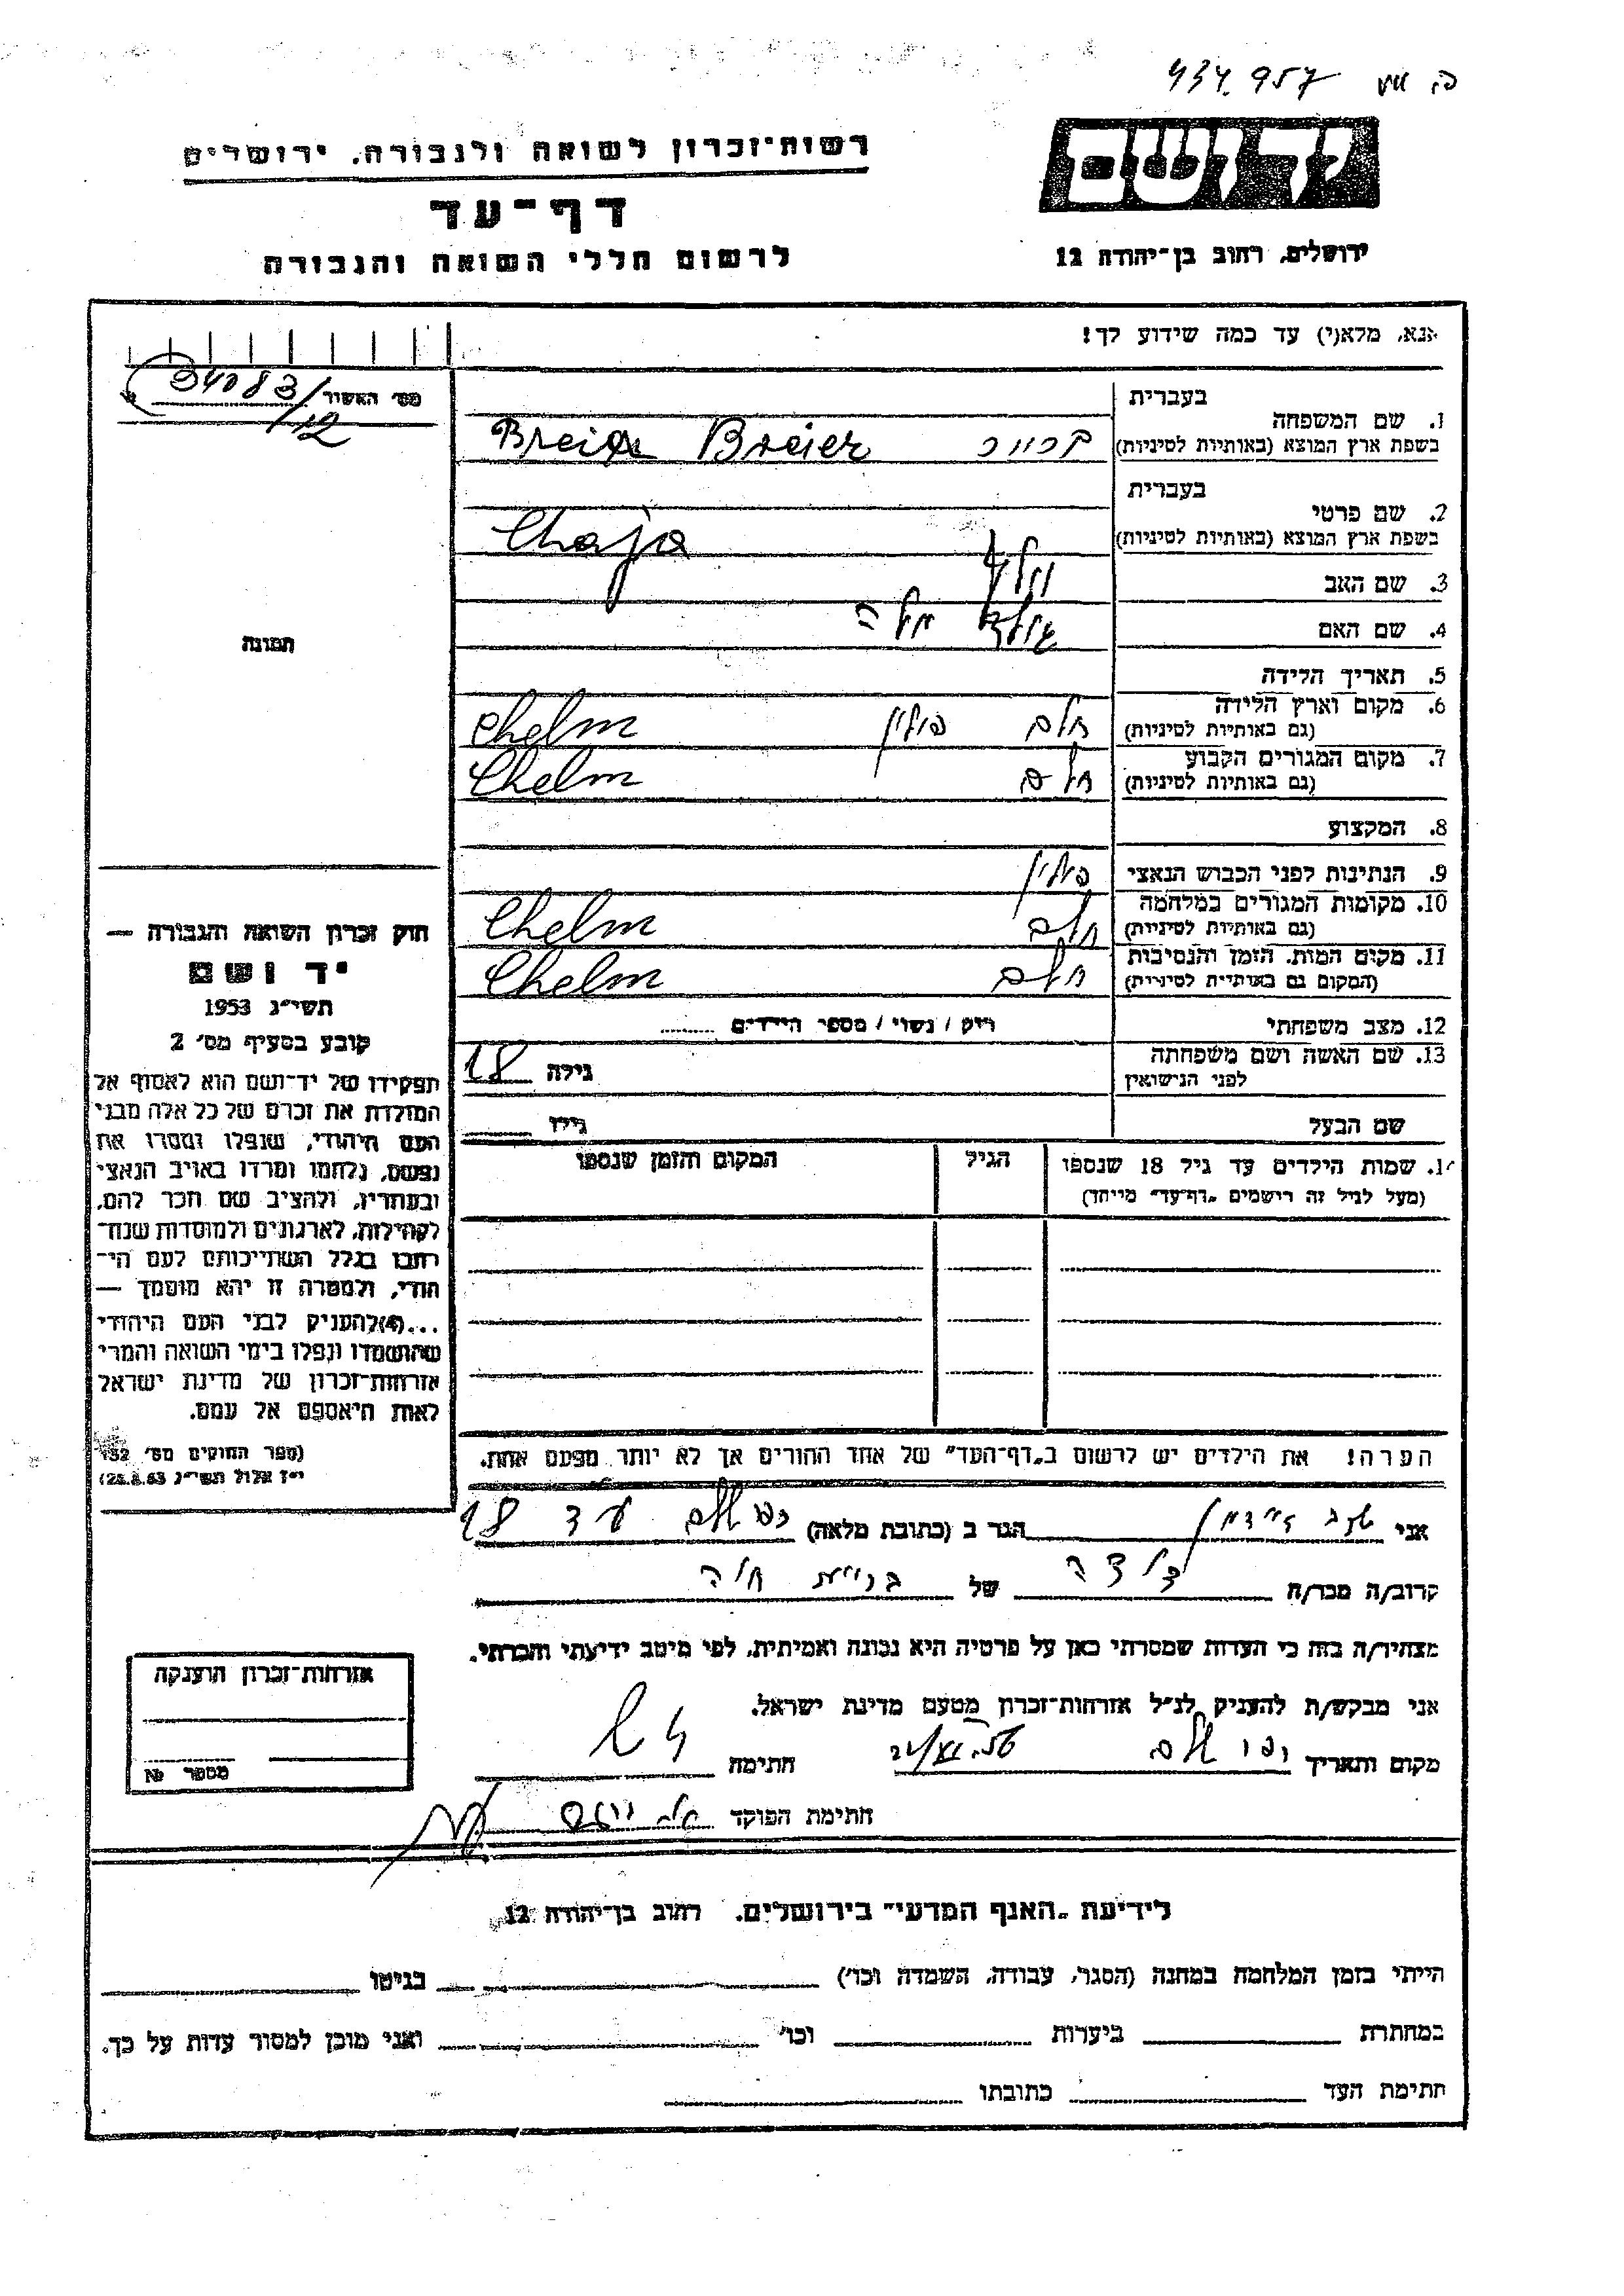 434.957
רשות-זכרון לשואה ולגבורה, ירושלים
דף-עד
לרשום חללי השואה והגבורה
ידושם
ירושלים, רחוב בן-יהודה 12
אנא, מלא(י) עד כמה שידוע לך!
מס׳ האשור 34083/12
1. שם המשפחה
בעברית
בשפת ארץ המוצא (באותיות לטיניות) Breier
2. שם פרטי
בעברית
בשפת ארץ המוצא (באותיות לטיניות) Chaja
3. שם האב
4. שם האם
5. תאריך הלידה
6. מקום וארץ הלידה
(גם באותיות לטיניות) חלם פולין Chelm
7. מקום המגורים הקבוע
(גם באותיות לטיניות) חלם Chelm
8. המקצוע
9. הנתינות לפני הכבוש הנאצי פולין
10. מקומות המגורים במלחמה
(גם באותיות לטיניות) חלם Chelm
11. מקום המות, הזמן והנסיבות
(המקום גם באותיות לטיניות) חלם Chelm
12. מצב משפחתי רוק / נשוי / מספר הילדים
13. שם האשה ושם משפחתה
לפני הנישואין גילה 18
שם הבעל גילו
תמונה
חוק זכרון השואה והגבורה —
יד ושם
תשי״ג 1953
קובע בסעיף מס׳ 2
תפקידו של יד-ושם הוא לאסוף אל
המולדת את זכרם של כל אלה מבני
העם היהודי, שנפלו ומסרו את
נפשם, נלחמו ומרדו באויב הנאצי
ובעוזריו, ולהציב שם וזכר להם,
לקהילות, לארגונים ולמוסדות שנח-
רבו בגלל השתייכותם לעם הי-
הודי, ולמטרה זו יהא מוסמך —
...(4) להעניק לבני העם היהודי
שהושמדו ונפלו בימי השואה והמרי
אזרחות-זכרון של מדינת ישראל
לאות היאספם אל עמם.
(ספר החוקים מס׳ 132
י״ז אלול תשי״ג 28.8.53)
שמות הילדים עד גיל 18 שנספו
(מעל לגיל זה רישמים „דף-עד״ מייחד)
הגיל
המקום והזמן שנספו
הערה! את הילדים יש לרשום ב„דף-העד״ של אחד ההורים אך לא יותר מפעם אחת.
אני הגר ב (כתובת מלאה) 18
קרוב/ה מכר/ה דודה של חיה
מצהיר/ה בזה כי העדות שמסרתי כאן על פרטיה היא נכונה ואמיתית, לפי מיטב ידיעתי והכרתי.
אני מבקש/ת להעניק לנ״ל אזרחות-זכרון מטעם מדינת ישראל.
מקום ותאריך חתימה
חתימת הפוקד
אזרחות-זכרון הוענקה
מספר №
לידיעת „האגף המדעי״ בירושלים, רחוב בן-יהודה 12
הייתי בזמן המלחמה במחנה (הסגר, עבודה, השמדה וכו׳) בגיטו
במחתרת ביערות וכו׳ ואני מוכן למסור עדות על כך.
חתימת העד כתובתו